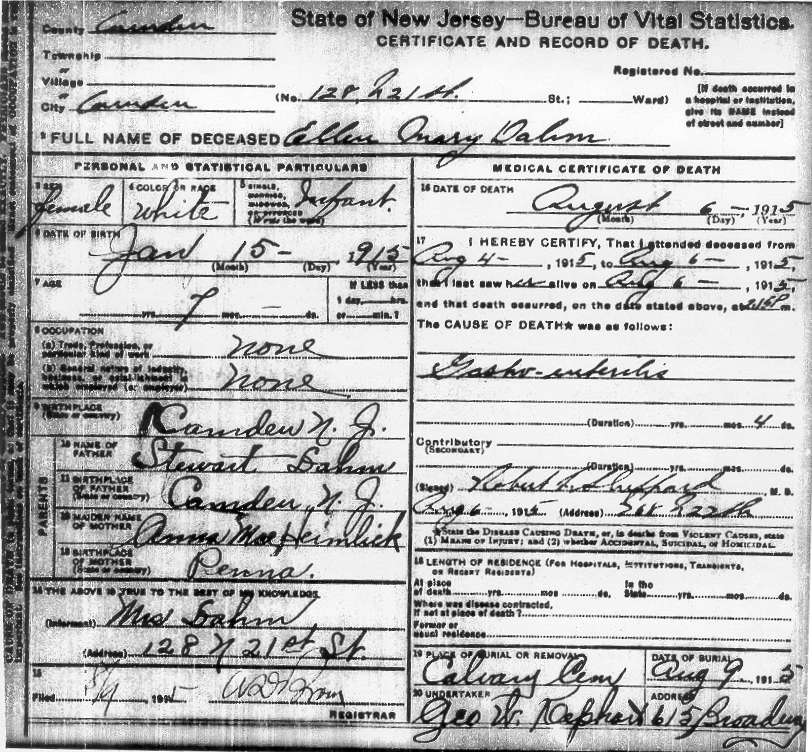 State of New Jersey—Bureau of Vital Statistics.
CERTIFICATE AND RECORD OF DEATH.
County Camden
Township
Registered No.
Village
City Camden (No. 128 N 21 St. St.; Ward)
[If death occurred in a hospital or institution, give its NAME instead of street and number]
FULL NAME OF DECEASED Ellen Mary Dahm
PERSONAL AND STATISTICAL PARTICULARS
3 SEX female
4 COLOR OR RACE White
5 SINGLE, MARRIED, WIDOWED, OR DIVORCED (Write the word) Infant
6 DATE OF BIRTH Jan 15 - , 1915
(Month) (Day) (Year)
7 AGE
yrs. 7 mos. - ds.
If LESS than 1 day, hrs. or min.?
8 OCCUPATION
(a) Trade, Profession, or particular kind of work none
(b) General nature of industry, business, or establishment in which employed (or employer) none
9 BIRTHPLACE (State or country) Camden N. J.
PARENTS
10 NAME OF FATHER Stewart Dahm
11 BIRTHPLACE OF FATHER (State or country) Camden, N. J.
12 MAIDEN NAME OF MOTHER Anna Mae Heimlick
13 BIRTHPLACE OF MOTHER (State or country) Penna.
14 THE ABOVE IS TRUE TO THE BEST OF MY KNOWLEDGE
(Informant) Mrs Dahm
(Address) 128 N 21st St.
15
Filed 8/9 1915
REGISTRAR
MEDICAL CERTIFICATE OF DEATH
16 DATE OF DEATH
August 6 - , 1915
(Month) (Day) (Year)
17 I HEREBY CERTIFY, That I attended deceased from
Aug 4 - , 1915, to Aug 6 - , 1915,
that I last saw her alive on Aug 6 - , 1915,
and that death occurred, on the date stated above, at m.
The CAUSE OF DEATH★ was as follows:
Gastro-enteritis
(Duration) yrs. mos. 4 ds.
Contributory (SECONDARY)
(Duration) yrs. mos. ds.
(Signed) Robert Sheppard M. D.
Aug 6 - , 1915 (Address)
★State the DISEASE CAUSING DEATH, or, in deaths from VIOLENT CAUSES, state
(1) MEANS OF INJURY; and (2) whether ACCIDENTAL, SUICIDAL, OR HOMICIDAL.
18 LENGTH OF RESIDENCE (FOR HOSPITALS, INSTITUTIONS, TRANSIENTS, OR RECENT RESIDENTS)
At place of death yrs. mos. ds. In the State yrs. mos. ds.
Where was disease contracted, if not at place of death?
Former or usual residence
19 PLACE OF BURIAL OR REMOVAL Calvary Cem
DATE OF BURIAL Aug 9, 1915
20 UNDERTAKER Geo W. Kephart
ADDRESS 615 Broadway